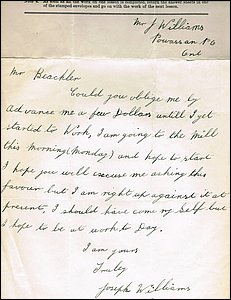 of the stamped envelopes and go on with the work of the next lesson.
Mr J Williams
Powassan P.O
Ont
Mr Beachler
Could you oblige me by
Advance me a few Dollars until I get
started to Work, I am going to the Mill
this Morning (Monday) and hope to start
I hope you will excuse me asking this
favour but I am right up against it at
present. I should have come my Self but
I hope to be at work to Day.
I am yours
Truley
Joseph Williams